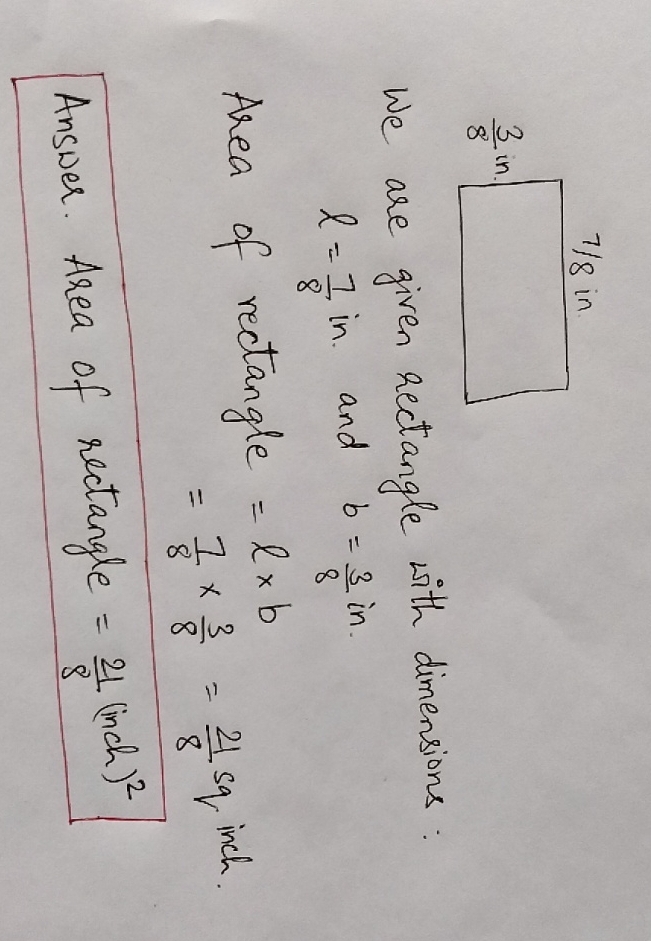 7/8 in.
3/8 in.
We are given rectangle with dimensions :
l = 7/8 in. and b = 3/8 in.
Area of rectangle = l × b
= 7/8 × 3/8 = 21/8 sq inch.
Answer. Area of rectangle = 21/8 (inch)²